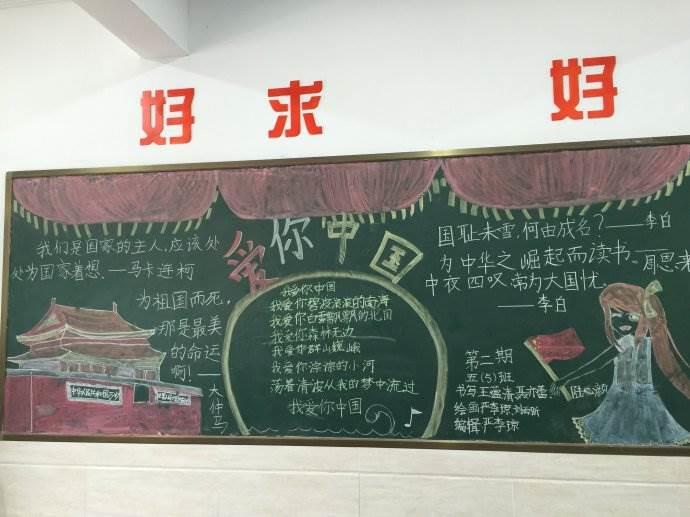 好 求 好
爱你中国
我们是国家的主人,应该处
处为国家着想。——马卡连柯
为祖国而死,
那是最美
的命运
啊!——
大仲马
我爱你中国
我爱你碧波滚滚的南海
我爱你白雪飘飘的北国
我爱你森林无边
我爱你群山巍峨
我爱你淙淙的小河
荡着清波从我的梦中流过
我爱你中国
国耻未雪,何由成名?——李白
为中华之崛起而读书。——周恩来
中衣四叹 常为大国忧。
——李白
第二期
五(5)班
书写
绘画 严李琼
编辑 严李琼